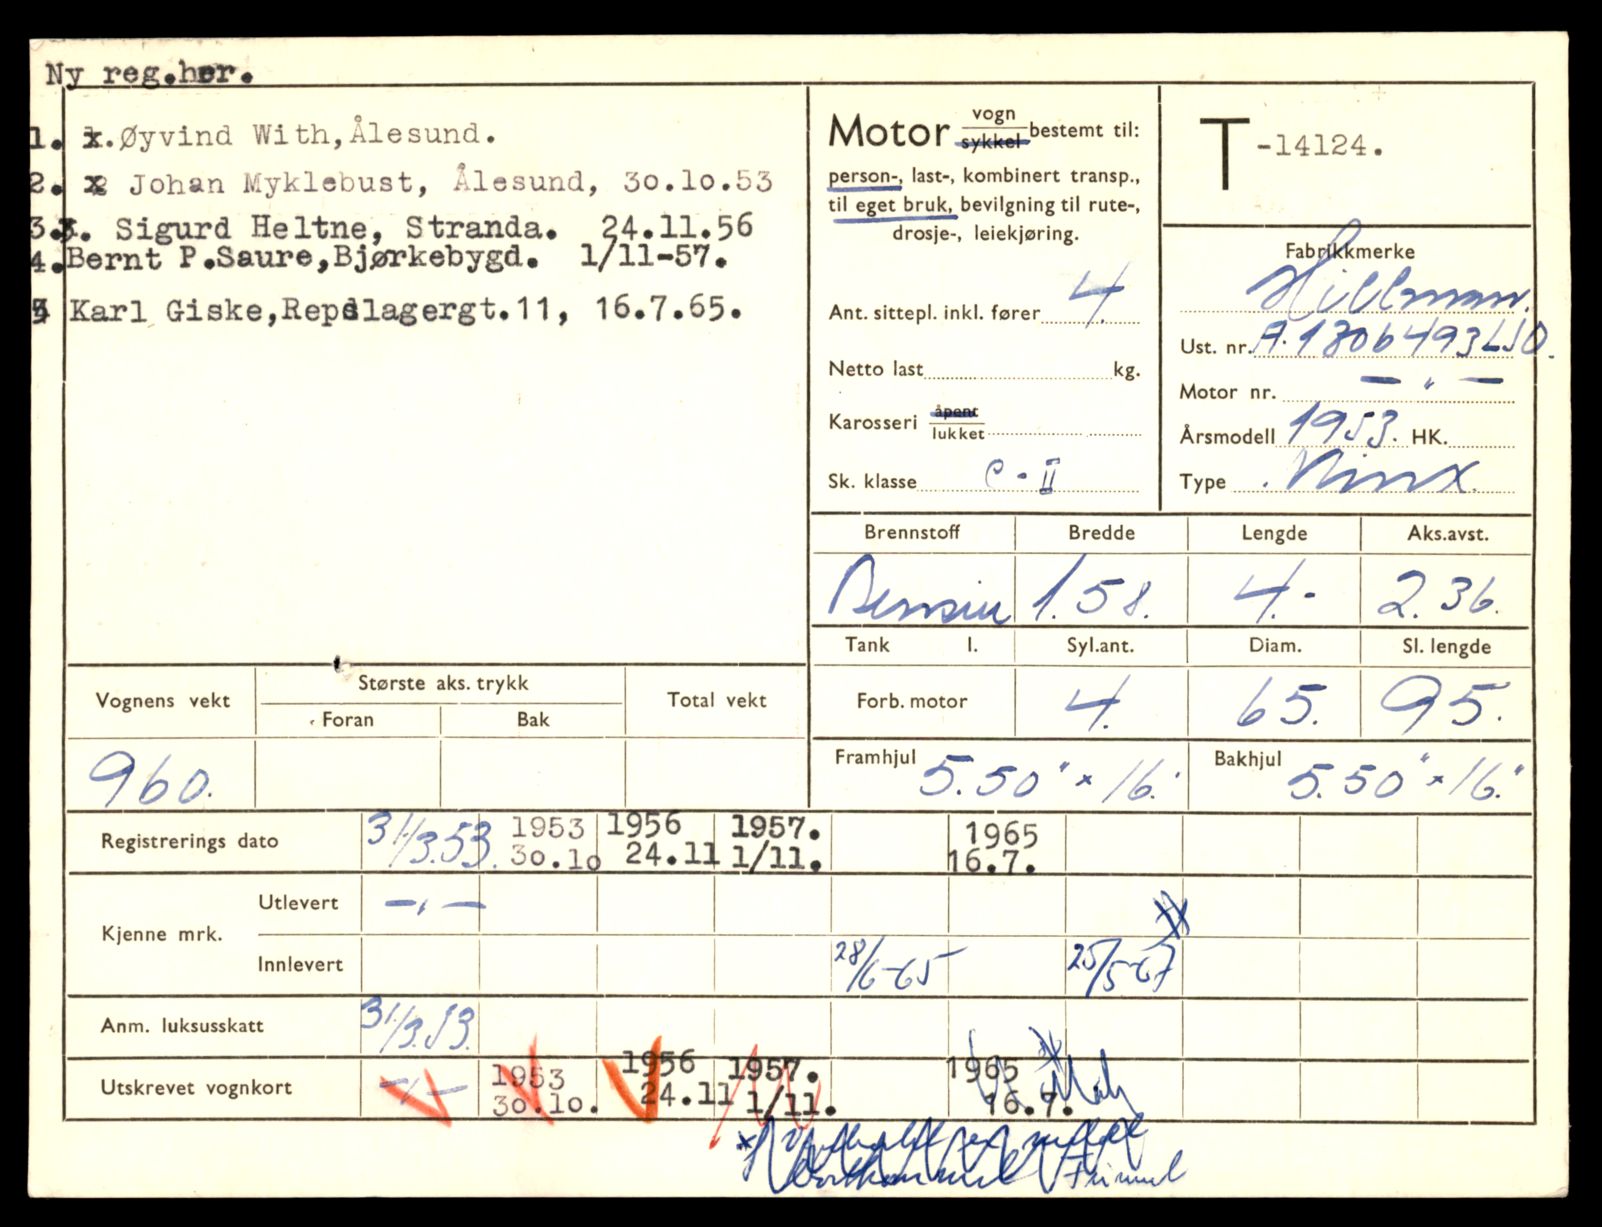 Ny reg.her.
1. x.Øyvind With,Ålesund.
2. Johan Myklebust, Ålesund, 30.10.53
3. Sigurd Heltne, Stranda. 24.11.56
4.Bernt P.Saure,Bjørkebygd. 1/11-57.
5 Karl Giske,Repslagergt.11, 16.7.65.
Motor vogn sykkel bestemt til:
person-, last-, kombinert transp.,
til eget bruk, bevilgning til rute-,
drosje-, leiekjøring.
Ant. sittepl. inkl. fører 4.
Netto last kg.
Karosseri åpent lukket
Sk. klasse C-II
T-14124.
Fabrikkmerke
Hillman.
Ust. nr. A.1806493LSO.
Motor nr. — " —
Årsmodell 1953. HK.
Type Minx.
Brennstoff Bredde Lengde Aks.avst.
Bensin 1.58. 4.- 2.36.
Tank l. Syl.ant. Diam. Sl. lengde
Forb. motor 4. 65. 95.
Framhjul 5.50" x 16." Bakhjul 5.50" x 16."
Vognens vekt Største aks. trykk Total vekt
Foran Bak
960.
Registrerings dato 31/3.53. 1953 1956 1957. 1965
30.10 24.11 1/11. 16.7.
Kjenne mrk. Utlevert — " —
Innlevert 28/6-65 25/5-67
Anm. luksusskatt 31/3.53.
Utskrevet vognkort — " — 1953 1956 1957. 1965
30.10. 24.11 1/11. 16.7.